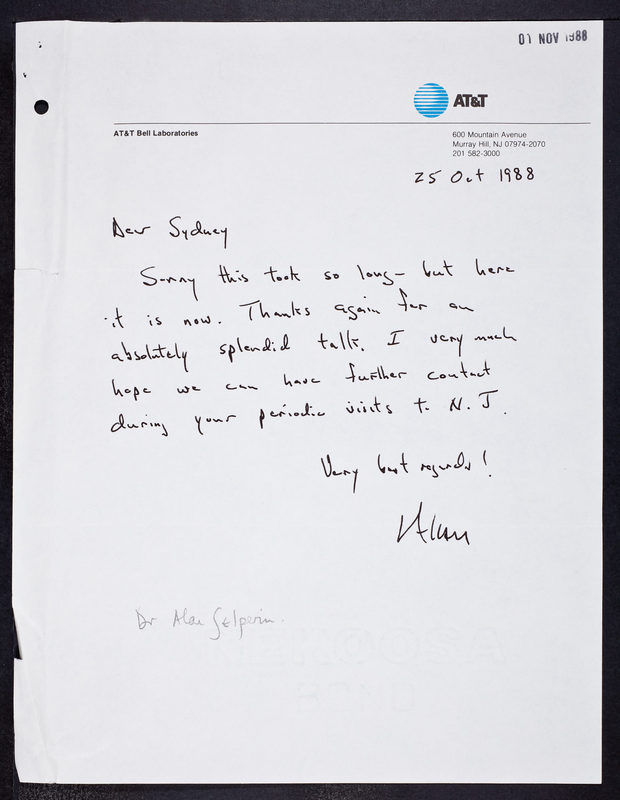 01 NOV 1988
AT&T
AT&T Bell Laboratories
600 Mountain Avenue
Murray Hill, NJ 07974-2070
201 582-3000
25 Oct 1988
Dear Sydney
Sorry this took so long - but here
it is now. Thanks again for an
absolutely splendid talk. I very much
hope we can have further contact
during your periodic visits to N.J.
Very best regards!
Alan
Dr Alan Gelperin.